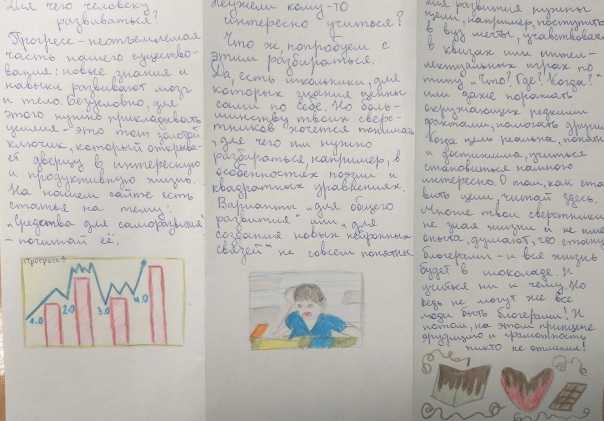 Для чего человеку
развиваться?
Прогресс - неотъемлемая
часть нашего существо-
вания: новые знания и
навыки развивают мозг
и тело. Безусловно, для
этого нужно прикладывать
усилия - это тот золотой
ключик, который открыва-
ет дверцу в интересную
и продуктивную жизнь.
На нашем сайте есть
статья на тему:
„Средства для саморазвития"
- почитай её.
Прогресс
1.0
2.0
3.0
4.0
Неужели кому-то
интересно учиться?
Что ж, попробуем с
этим разбираться.
Да, есть школьники, для
которых знания ценны
сами по себе. Но боль-
шинству твоих свер-
стников хочется понимать
, для чего им нужно
разбираться, например, в
особенностях поэзии и
квадратных уравнениях.
Варианты „для общего
развития" или „для
создания новых нейронных
связей" не совсем понятны
для развития нужны
цели, например, поступить
в вуз мечты, участвовать
в квизах или интел-
лектуальных играх по
типу „Что? Где? Когда?"
или даже поражать
окружающих редкими
фактами, помогать другим
Когда цель реальна, понятна
и достижима, учиться
становиться намного
интересно. О том, как ста-
вить цели, читай здесь.
Многие твои сверстники
не зная жизни и не имея
опыта, думают, что стоит
блогерами - и вся жизнь
будет в шоколаде. И
учиться ни к чему. Но
ведь не могут же все
люди быть блогерами! И
потом, на этом принципе
эрудицию и грамотность
никто не отменял!